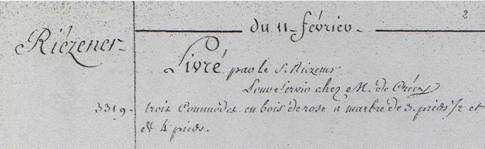 2
du 11 février
Riézener
Livré par le S. Riézener
Pour Servir chez M. de
3319 trois Commodes en bois de rose a marbre de 3. pieds 1/2 et
et 4 pieds.